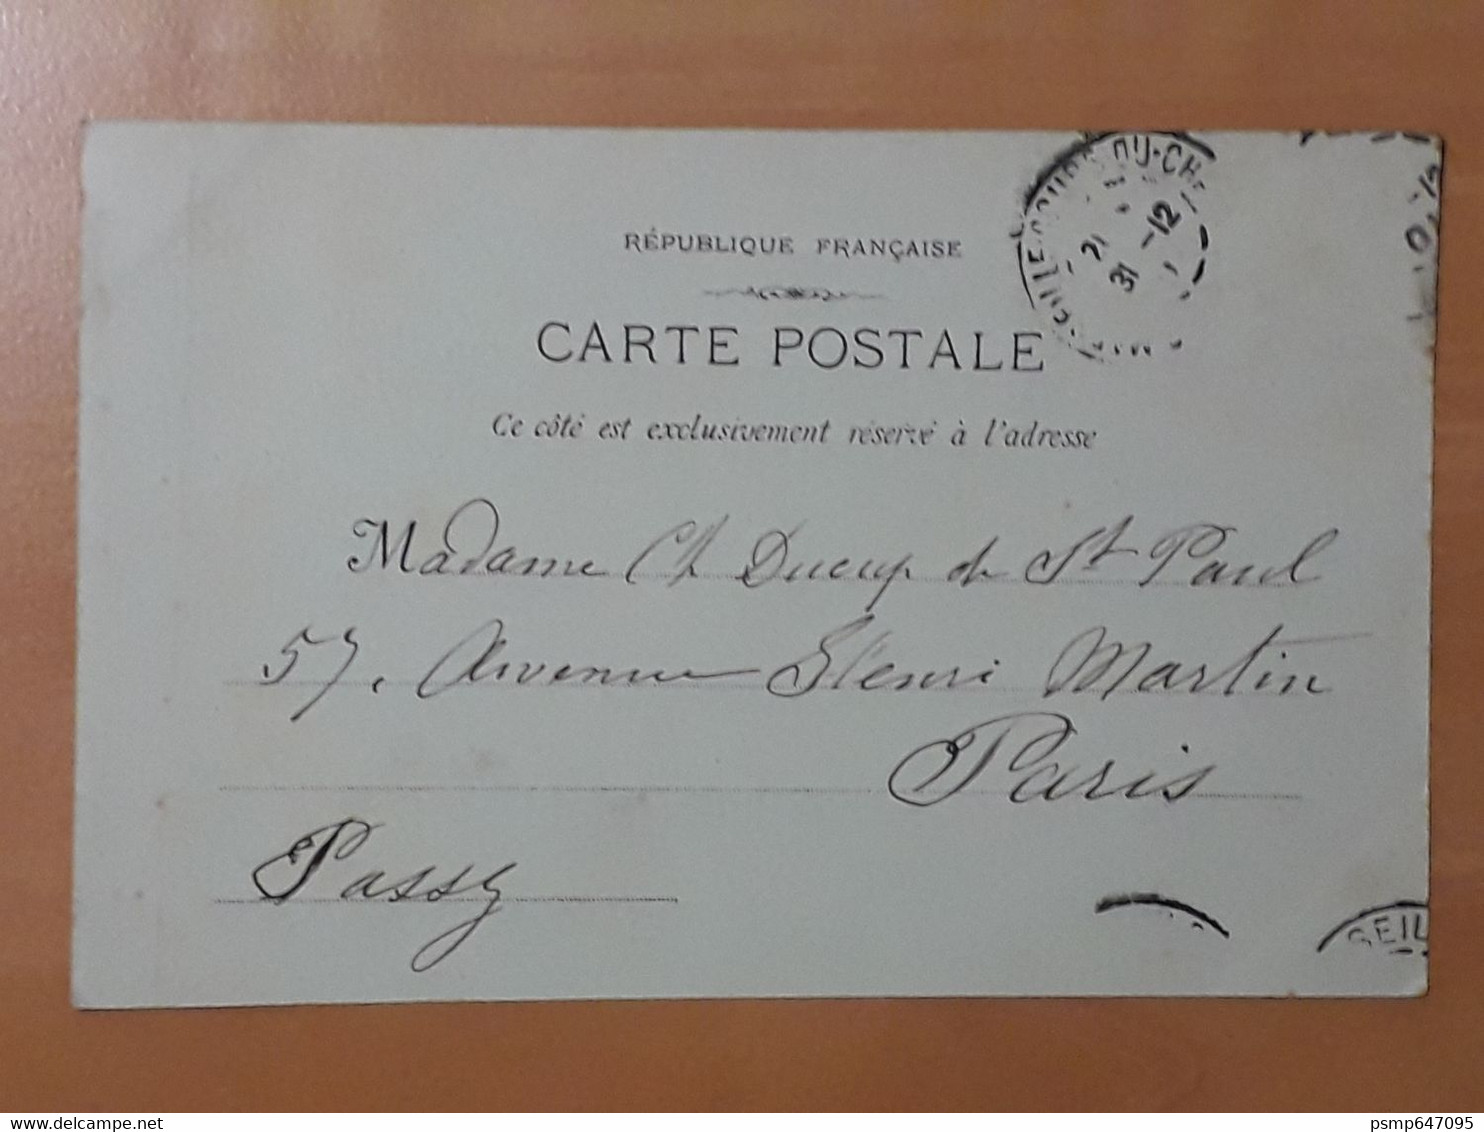 RÉPUBLIQUE FRANÇAISE
CARTE POSTALE
Ce côté est exclusivement réservé à l'adresse
Madame Ch Ducup de St Paul
57, Avenue Henri Martin
Paris
Passy
DU-CH
21
31 -12
SEIL
psmp647095